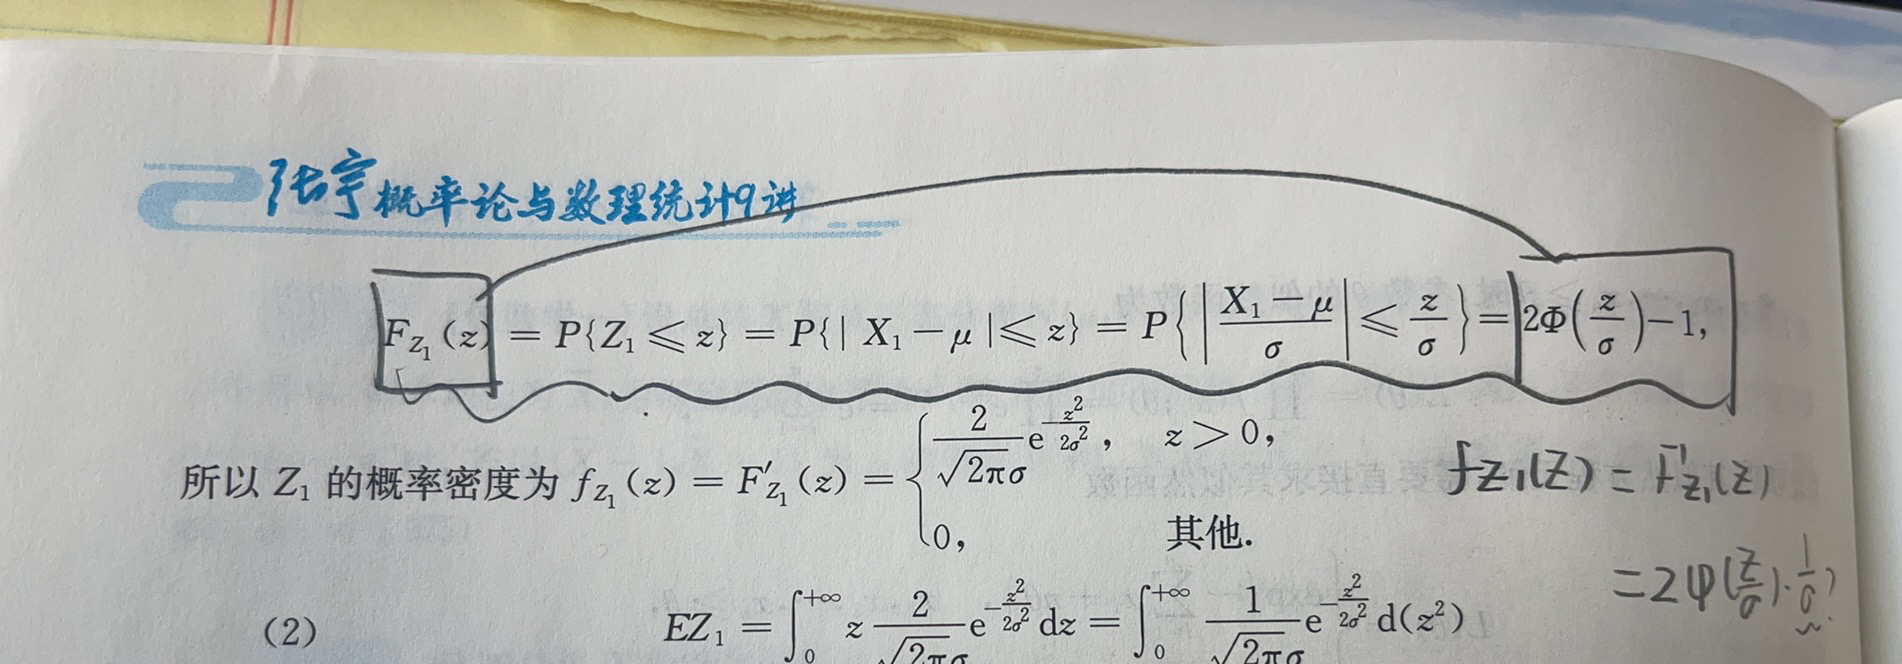 张宇概率论与数理统计9讲
F_{Z_1}(z) = P{Z_1 ≤ z} = P{| X_1 − μ | ≤ z} = P{|\frac{X_1 − μ}{σ}| ≤ \frac{z}{σ}} = 2Φ(\frac{z}{σ}) − 1,
所以 Z_1 的概率密度为 f_{Z_1}(z) = F'_{Z_1}(z) = { \frac{2}{\sqrt{2π}σ} e^{−\frac{z^2}{2σ^2}}, z > 0,
0, 其他.
f_{Z_1}(z) = F'_{Z_1}(z)
= 2φ(\frac{z}{σ})·\frac{1}{σ}
(2) EZ_1 = ∫_0^{+∞} z \frac{2}{\sqrt{2π}σ} e^{−\frac{z^2}{2σ^2}} dz = ∫_0^{+∞} \frac{1}{\sqrt{2π}σ} e^{−\frac{z^2}{2σ^2}} d(z^2)